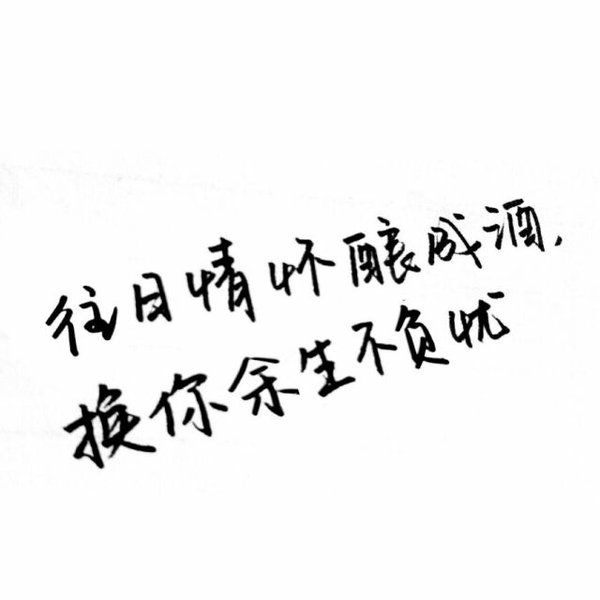 往日情怀酿成酒,
换你余生不负忧